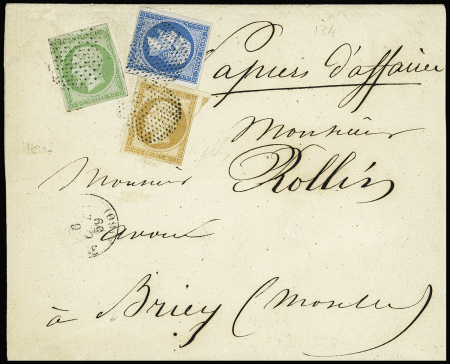 Papiers d'affaires
Monsieur
Rollin
Monsieur
avoué
à Briey (Moselle)
(60)
59